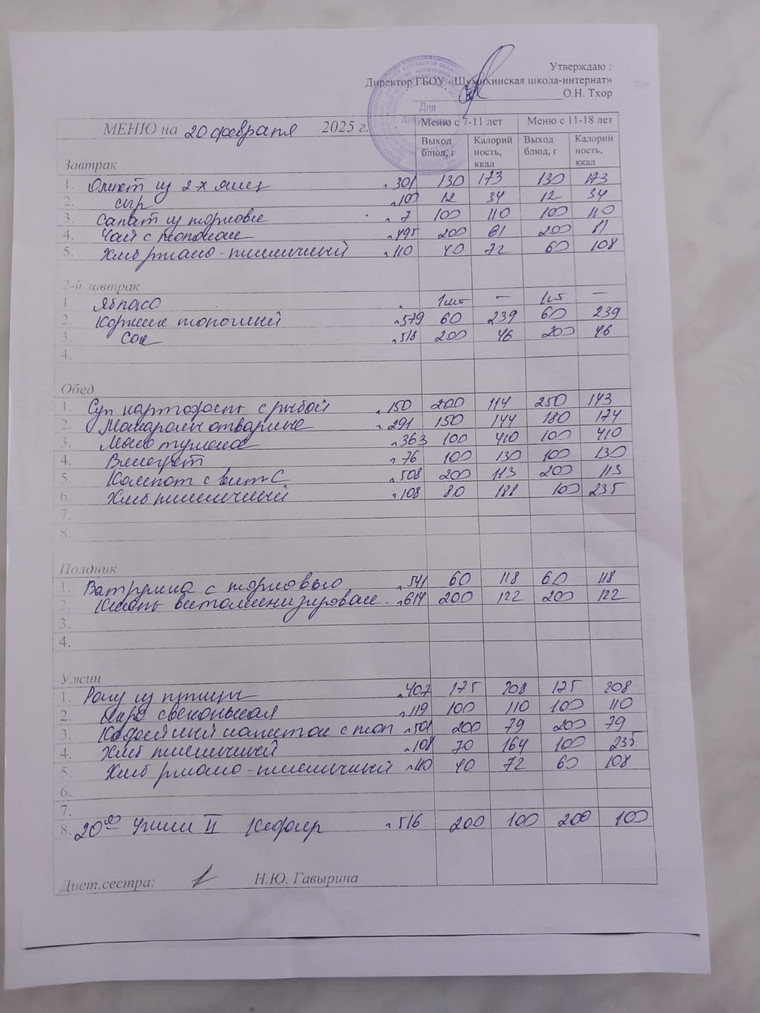 Утверждаю :
Директор ГБОУ «Шумихинская школа-интернат»
О.Н. Тхор
Для
МЕНЮ на 20 февраля 2025 г.
Меню с 7-11 лет Меню с 11-18 лет
Выход блюд, г Калорий ность, ккал Выход блюд, г Калорий ность, ккал
Завтрак
1. Омлет из 2х яиц 301 130 173 130 173
2. Сыр 12 34 12 34
3. Салат из моркови 7 100 110 100 110
4. Чай с 495 200 61 200
5. Хлеб ржано-пшеничный 110 40 72 60 108
2-й завтрак
1. Яблоко 1шт — 1шт —
2. Коржик молочный 579 60 239 60 239
3. Сок 518 200 46 200 46
4.
Обед
1. Суп картофель с рыбой 150 200 114 250 143
2. Макароны отварные 291 150 144 180 174
3. Мясо тушеное 363 100 410 100 410
4. Винегрет 76 100 130 100 130
5. Компот с вит С 508 200 113 200 113
6. Хлеб пшеничный 108 80 188 100 235
7.
8.
Полдник
1. Ватрушка с 541 60 118 60 118
2. Кисель 614 200 122 200 122
3.
4.
Ужин
1. Рагу из птицы 407 175 208 175 208
2. Икра свекольная 119 100 110 100 110
3. Кофейный напиток с мол 501 200 79 200 79
4. Хлеб пшеничный 108 70 164 100 235
5. Хлеб ржано-пшеничный 110 40 72 60 108
6.
7.
8. 20⁰⁰ Ужин II Кефир 516 200 100 200 100
Диет.сестра: Н.Ю. Гавырина